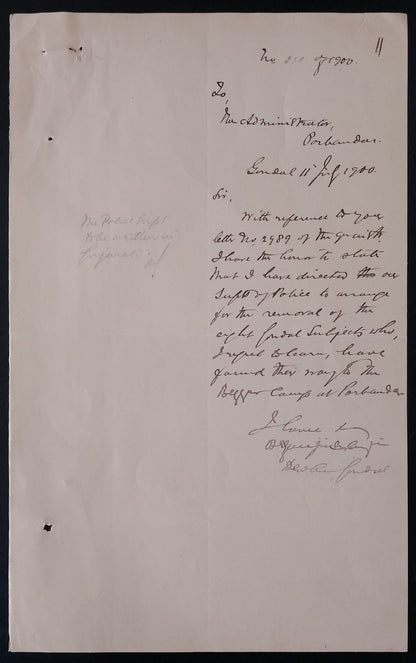 11
No. 210 of 1900.
To,
The Administrator,
Porbandar.
Gondal 11th July 1900.
Sir,
With reference to your
letter No. 2989 of the
I have the honor to state
that I have directed our
Supdt of Police to arrange
for the removal of the
eight Gondal Subjects who,
I regret to learn, have
found their way to the
Beggar Camp at Porbandar
I have
Gondal
The Police Supdt
to be written in
Gujarati